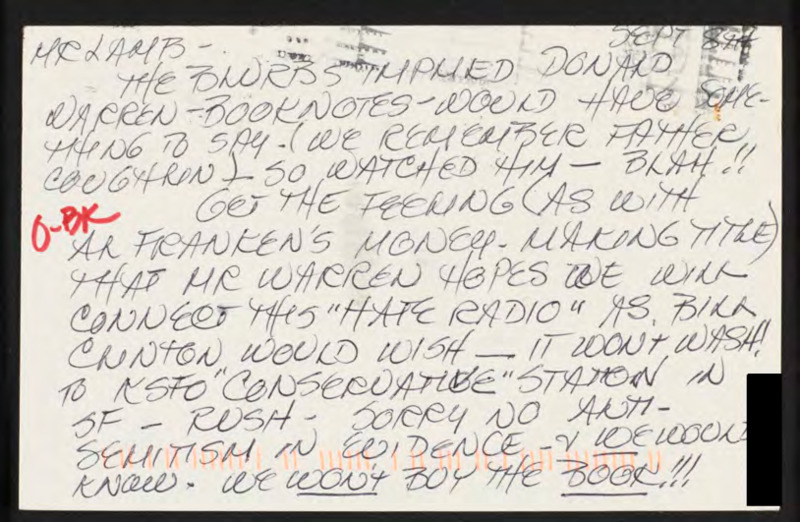 SEPT 8TH
MR LAMB -
THE BLURBS IMPLIED DONALD
WARREN - BOOKNOTES - WOULD HAVE SOME-
THING TO SAY. (WE REMEMBER FATHER
COUGHLIN) - SO WATCHED HIM - BLAH!!
GET THE FEELING (AS WITH
O-BK
AL FRANKEN'S MONEY-MAKING TITLE)
THAT MR WARREN HOPES WE WILL
CONNECT THIS "HATE RADIO" AS BILL
CLINTON WOULD WISH — IT WONT WASH!
TO KSFO "CONSERVATIVE" STATION IN
SF - RUSH - SORRY NO ANTI-
SEMITISM IN EVIDENCE - & WE WOULD
KNOW. WE WONT BUY THE BOOK!!!